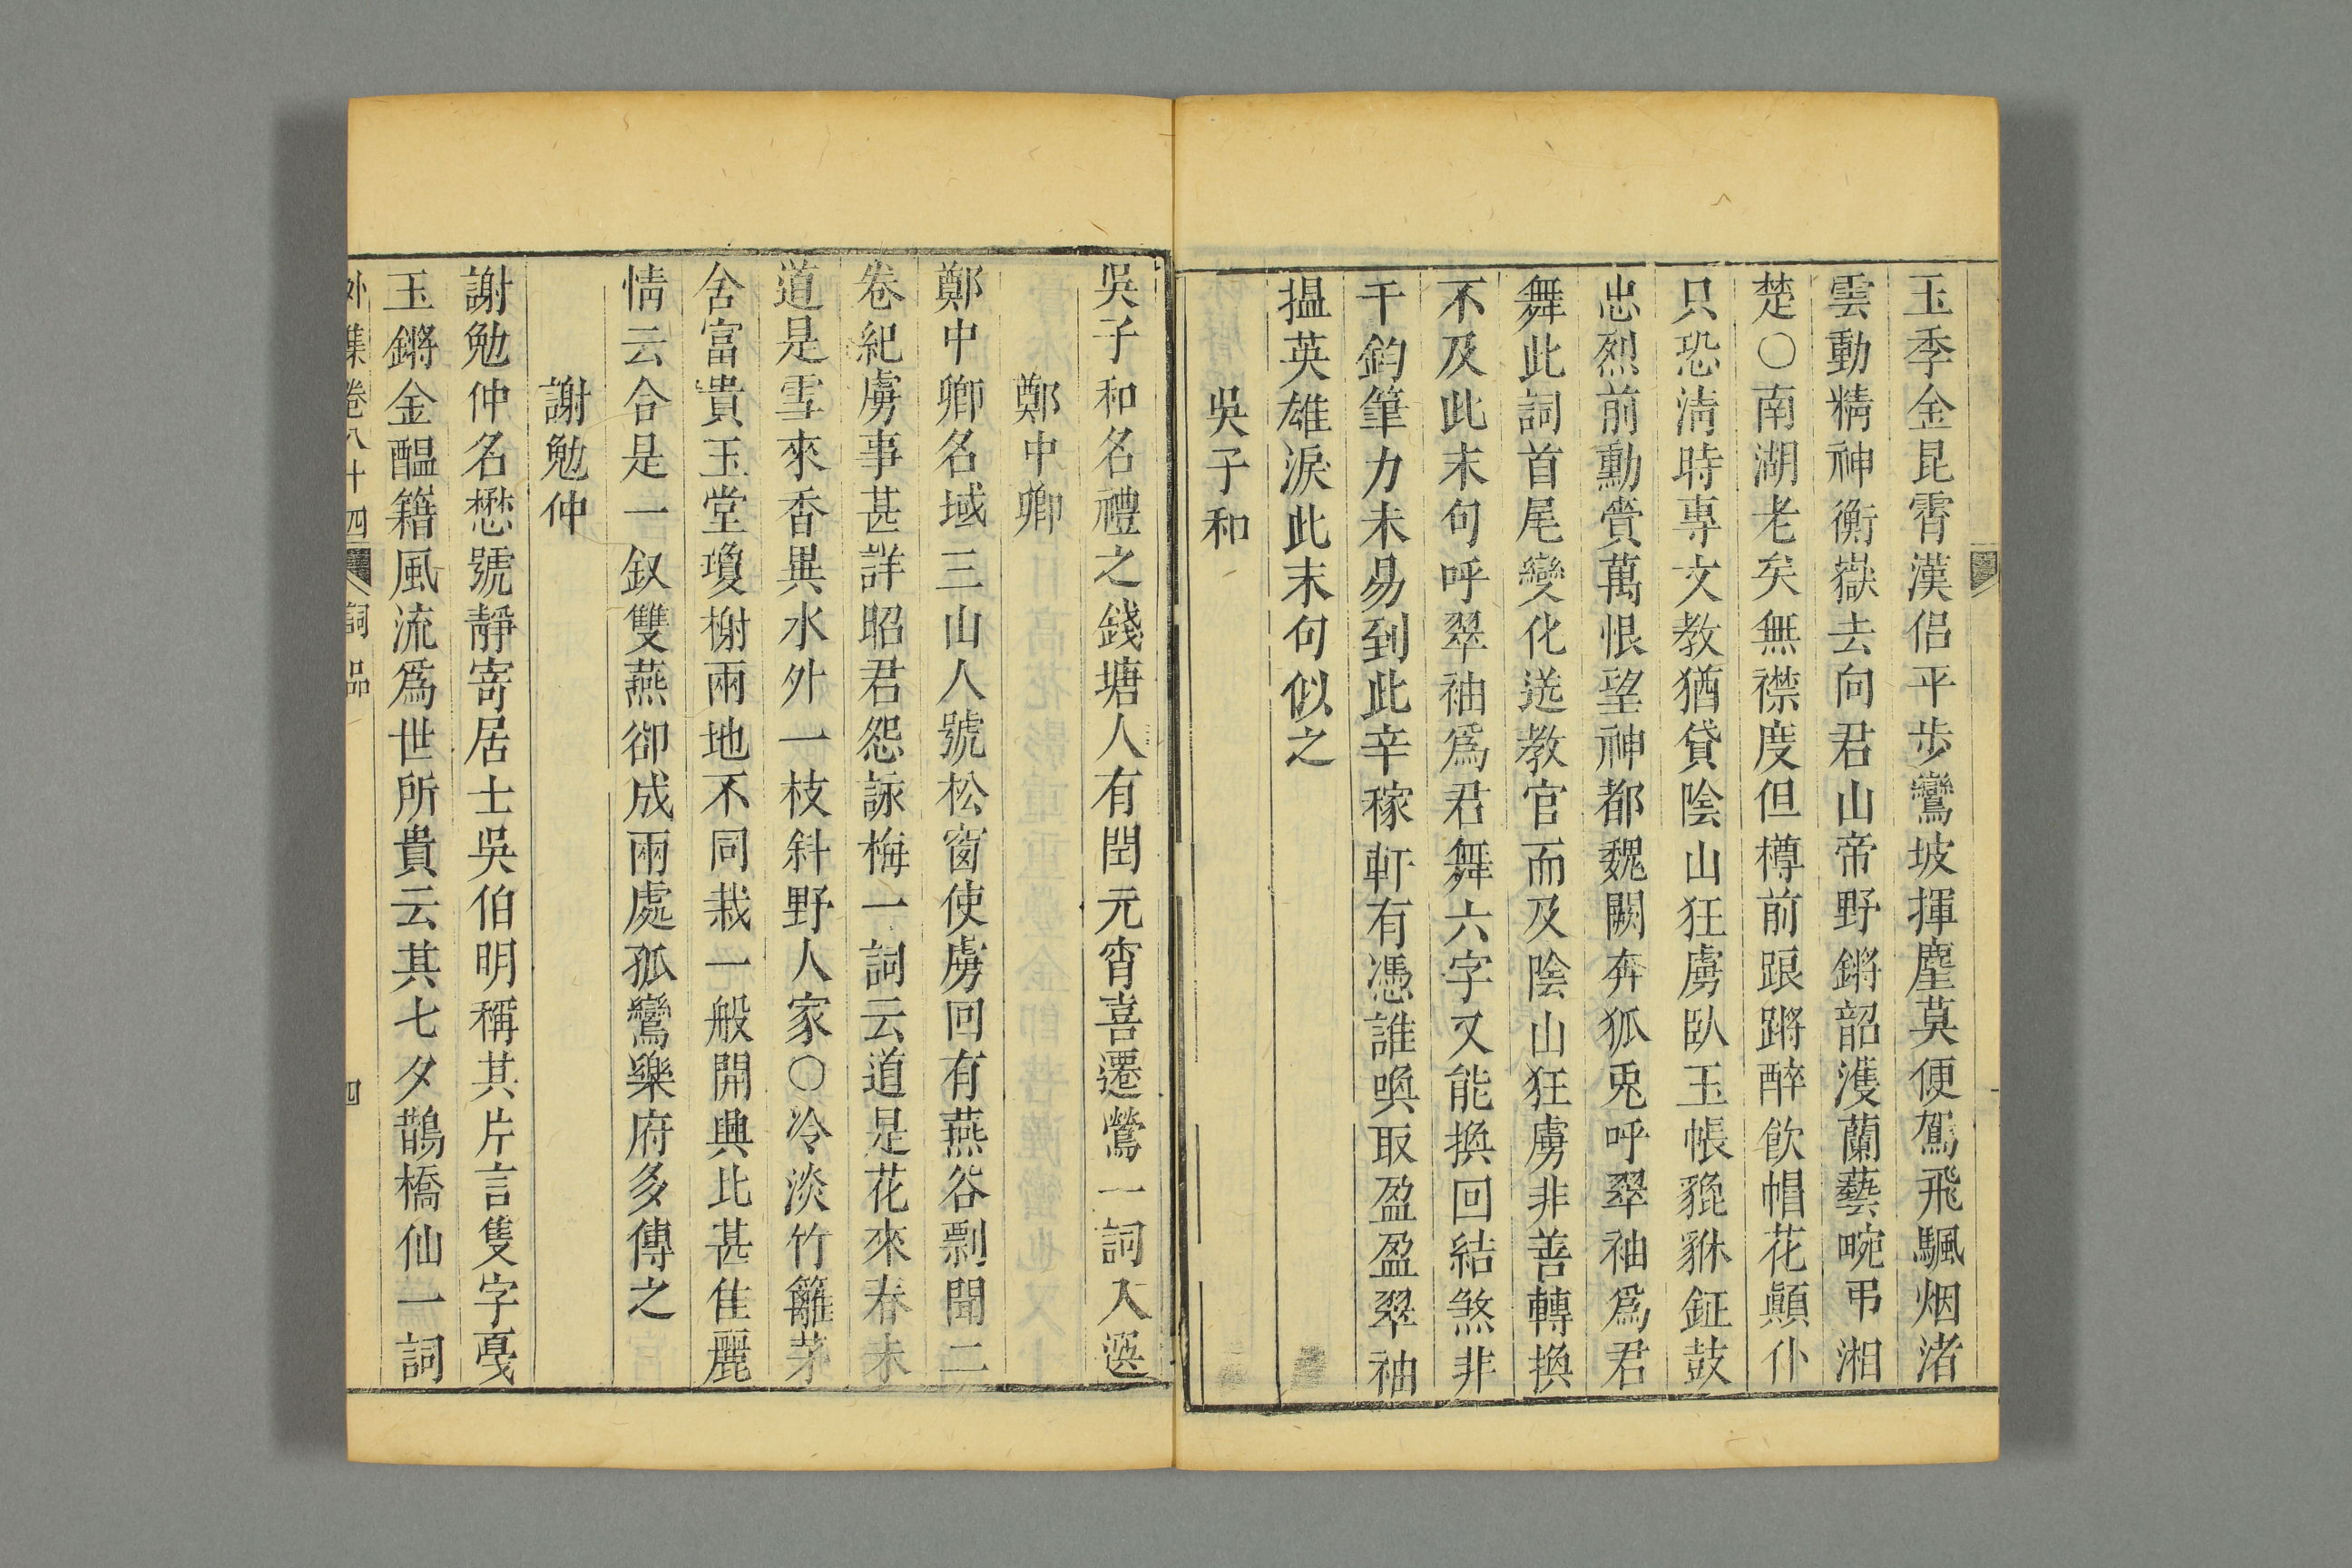 玉季金昆霄漢侶平步鸞坡揮麈莫便駕飛颿烟渚
雲動精神衡嶽去向君山帝野鏘韶濩蘭藝畹弔湘
楚○南湖老矣無襟度但樽前踉蹡醉飲帽花顛仆
只恐清時專文教猶貸陰山狂虜臥玉帳貔貅鉦鼓
忠烈前勳賫萬恨望神都魏闕奔狐兎呼翠袖爲君
舞此詞首尾變化送教官而及陰山狂虜非善轉換
不及此末句呼翠袖爲君舞六字又能換回結煞非
千鈞筆力未易到此辛稼軒有憑誰喚取盈盈翠袖
搵英雄淚此末句似之
吳子和
吳子和名禮之錢塘人有閏元宵喜遷鶯一詞入選
鄭中卿
鄭中卿名域三山人號松窗使虜回有燕谷剽聞二
卷紀虜事甚詳昭君怨詠梅一詞云道是花來春未
道是雪來香異水外一枝斜野人家○冷淡竹籬茅
舍富貴玉堂瓊榭兩地不同栽一般開興比甚佳麗
情云合是一釵雙燕卻成兩處孤鸞樂府多傳之
謝勉仲
謝勉仲名懋號靜寄居士吳伯明稱其片言隻字戞
玉鏘金醞籍風流爲世所貴云其七夕鵲橋仙一詞
外集卷八十四 詞品 四